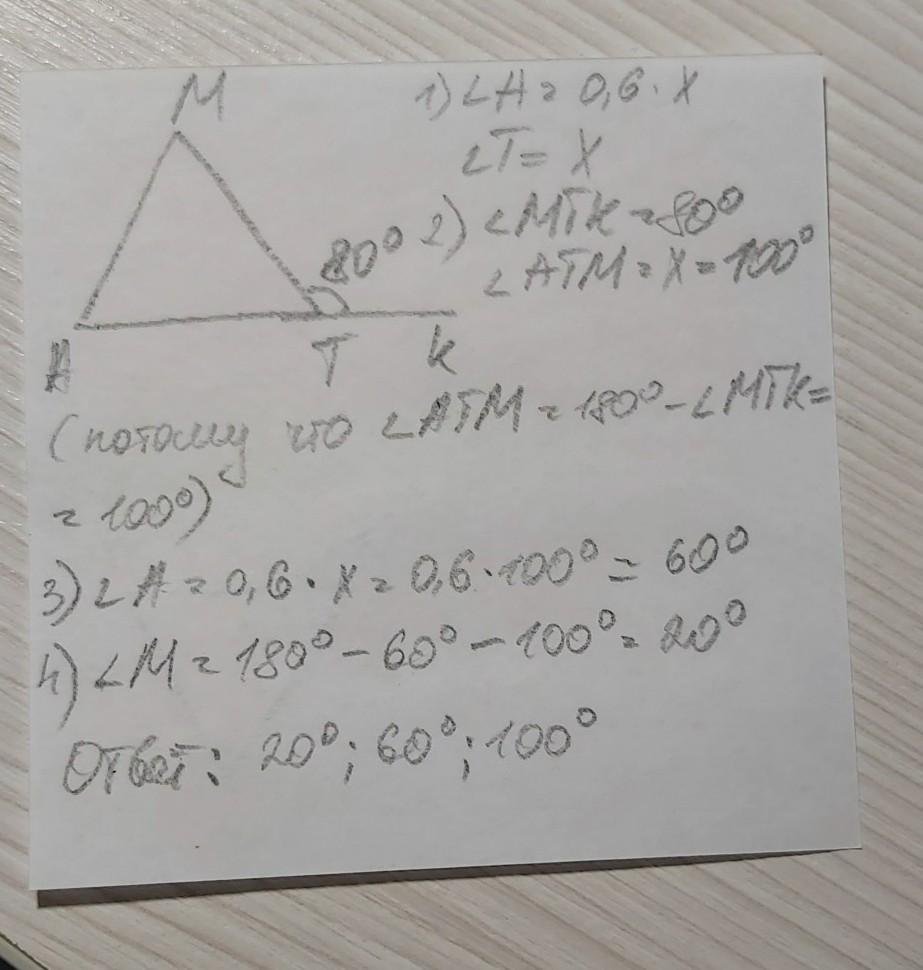 M
1) ∠A = 0,6 · X
∠T = X
80° 2) ∠MTK = 80°
∠ATM = X = 100°
A T K
(потому что ∠ATM = 180° - ∠MTK =
= 100°)
3) ∠A = 0,6 · X = 0,6 · 100° = 60°
4) ∠M = 180° - 60° - 100° = 20°
Ответ: 20°; 60°; 100°